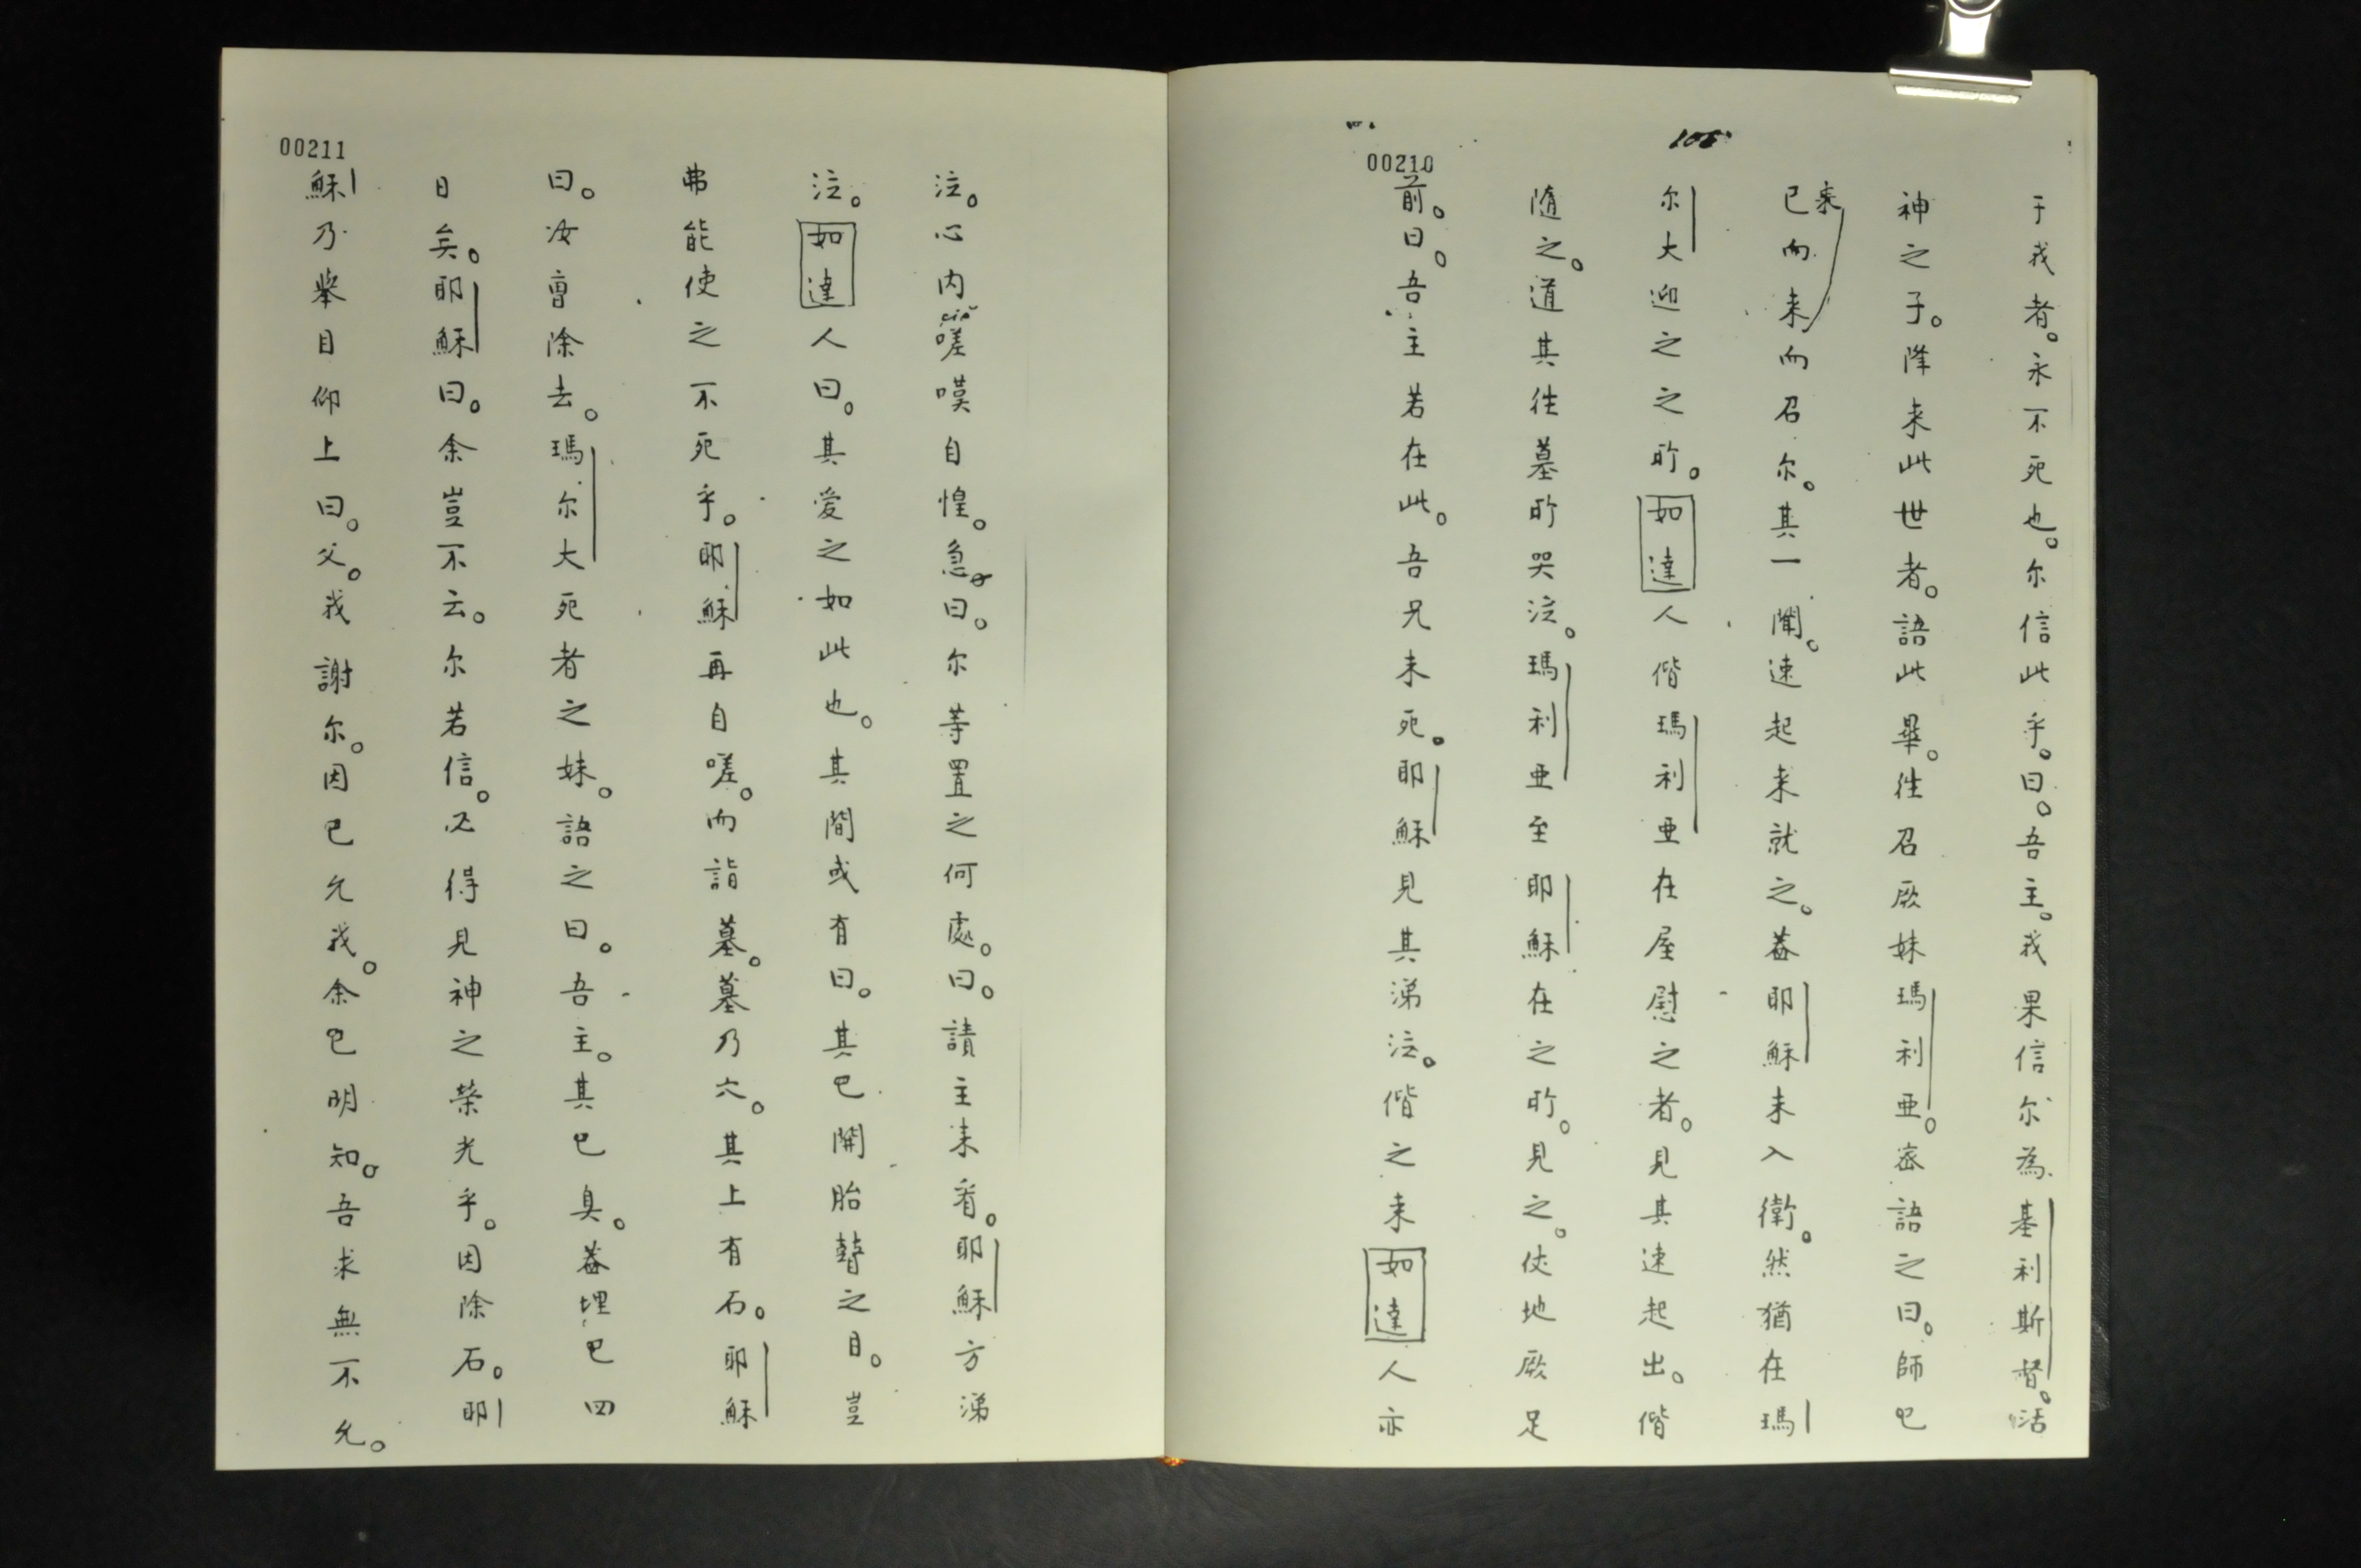 105
00210
于我者。永不死也。尔信此乎。曰。吾主。我果信尔為基利斯督。活
神之子。降来此世者。語此畢。徃召厥妹瑪利亜。宻語之曰。師已
来
已而来而召尔。其一聞。速起来就之。葢耶穌未入衛。然猶在瑪
尔大迎之之所。如達人偕瑪利亜在屋慰之者。見其速起出。偕
随之。道其徃墓所哭泣。瑪利亜至耶穌在之所。見之。伏地厥足
前。曰。吾主若在此。吾兄未死。耶穌見其涕泣。偕之来如達人亦
00211
泣。心内嗟嘆自惶。急曰。尔等置之何處。曰。請主来看。耶穌方涕
泣。如達人曰。其愛之如此也。其間或有曰。其已開胎瞽之目。豈
弗能使之不死乎。耶穌再自嗟。而詣墓。墓乃穴。其上有石。耶穌
曰。汝曹除去。瑪尔大死者之妹。語之曰。吾主。其已臭。葢埋已四
日矣。耶穌曰。余豈不云。尔若信。必得見神之榮光乎。因除石。耶
穌乃舉目仰上曰。父。我謝尔。因已允我。余已明知。吾求無不允。